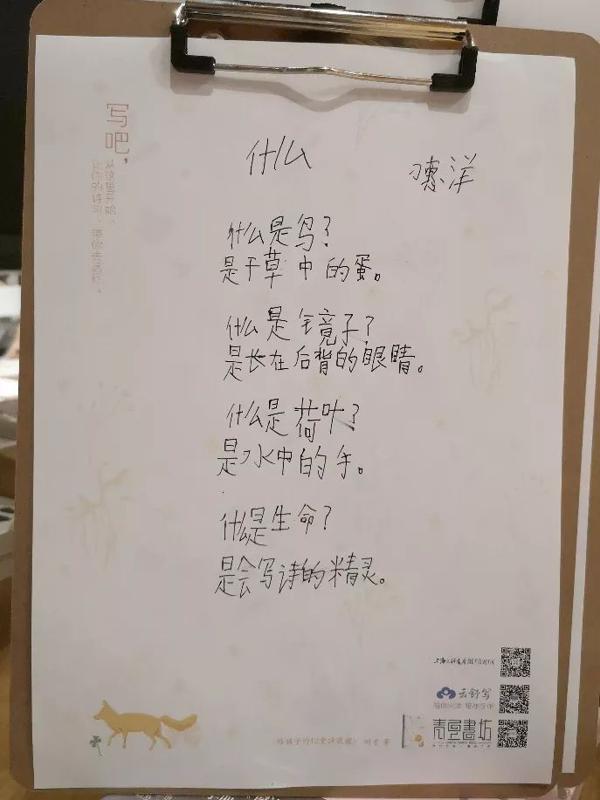 写吧，
从这里开始，
什么
惠洋
什么是鸟？
是干草中的蛋。
什么是镜子？
是长在后背的眼睛。
什么是荷叶？
是水中的手。
什么是生命？
是会写诗的精灵。
云舒写
青豆書坊